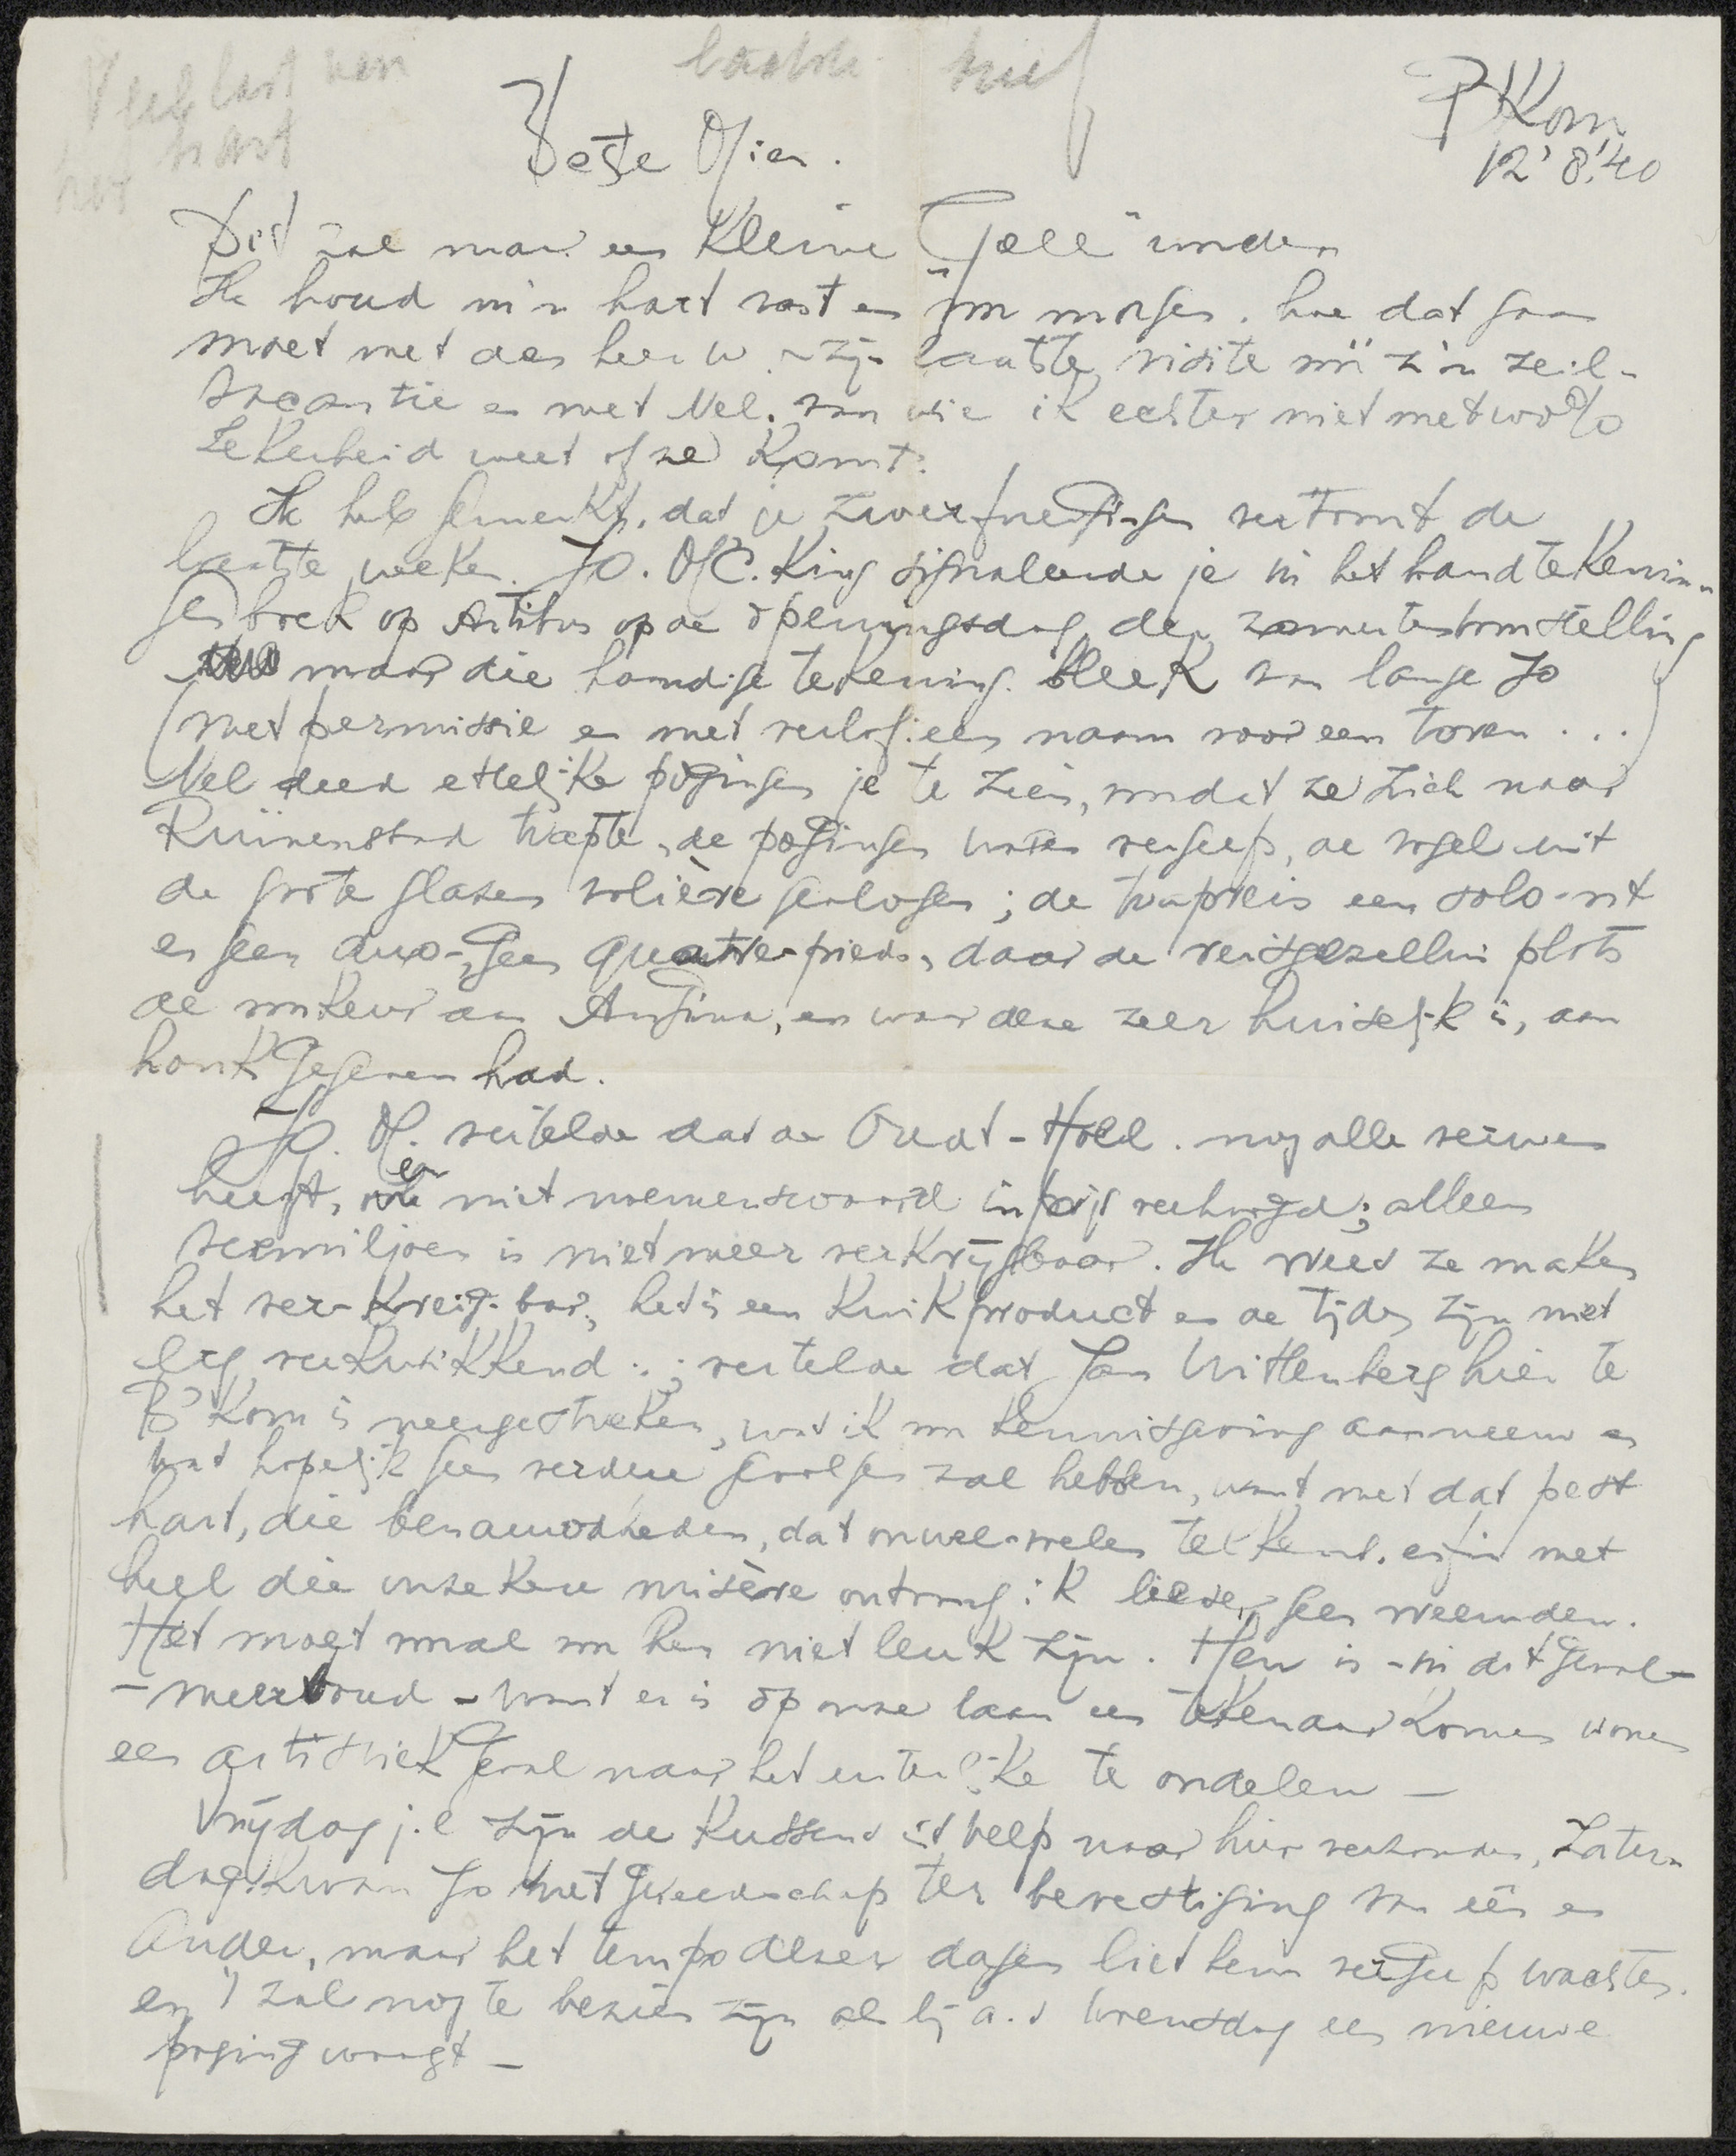 Veel last van
het hart
laatste brief
B'Kom
12'8.'40
Beste Mien.
Dit zal maar een kleine "Joell" worden
Ik houd m'n hart vast en om morgen. hoe dat gaan
moet met den heer W. zijn laatste visite vóór z'n zeil-
vacantie en met Nel. van wie ik echter niet met 100%
zekerheid weet of ze komt.
Ik heb gemerkt, dat je zwerfneigingen vertoont de
laatste weken. Jo. M.C. King signaleerde je in het handtekenin-
genboek op Artibus op de openingsdag der zomertentoonstelling
maar die handige tekening bleek van lange Jo
(met permissie en met verlof: een naam voor een toren ...)
Nel deed ettelijke pogingen je te zien, omdat ze zich naar
Ruïnenstad trapte, de pogingen waren vergeefs, de vogel uit
de grote glazen volière gevlogen; de trapreis een solo-rit
en geen duo-, geen quatre-pieds, daar de reisgezellin plots
de voorkeur aan Angina, en waar deze zeer huiselijk is, aan
honk gegeven had.
Jo. M. vertelde dat de Oud-Holl. nog alle verven
heeft, en niet noemenswaard in prijs verhoogd; alleen
vermiljoen is niet meer verkrijgbaar. Ik vrees ze maken
het ver-kreig-bar, het is een kwikproduct en de tijden zijn niet
erg verkwikkend.; vertelde dat Jan Wittenberg hier te
B'Kom is neergestreken, wat ik voor kennisgeving aanneem en
wat hopelijk geen verdere gevolgen zal hebben, want met dat pest
hart, die benauwdheden, dat onwel-voelen telkens. enfin met
heel die onzekere misère ontvang ik liever geen vreemden.
Het moet vooral voor hen niet leuk zijn. Hen is - in dit geval -
- meervoud - want er is op onze laan een tekenaar komen wonen
een artistiek geval naar het uiterlijke te oordelen —
Vrijdag j.l zijn de kussens uit Velp naar hier verzonden, Zater-
dag kwam Jo met gereedschap ter bevestiging van één en
Ander, maar het tempo dezer dagen liet hem vergeefs wachten.
en 't zal nog te bezien zijn als hij a.s Woensdag een nieuwe
poging waagt —